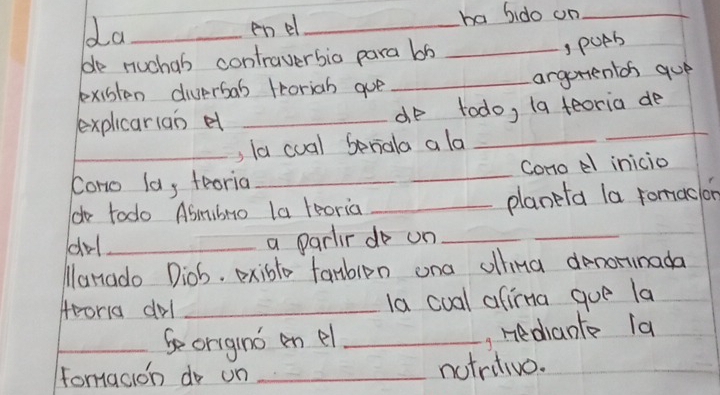 La ________ en el ____________ ha sido un ________
de muchas contraversia para los ________, pues
existen diversas teorias que __________ argumentos que
explicarian el __________ de todo, la teoria de
__________, la cual señala a la ________ ________
como la, teoria __________ ________ como el inicio
de todo Asmismo la teoria ________ planeta la formación
del __________ a partir de un ______ ______
llamado Dios. existe tambien una ultima denominada
teoria del ____________ la cual afirma que la
______ se originó en el __________, mediante la
formación de un __________ nutritivo.